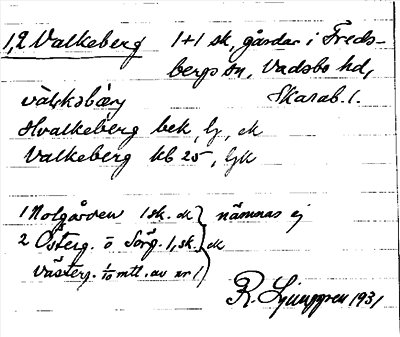 1,2 Valkeberg 1+1 sk, gårdar i Freds-
bergs sn, Vadsbo hd,
Skarab. l.
Hvalkeberg bek, lj, ek
Valkeberg kb 25, ljk
1 Nolgården 1 sk. ek } nämnas ej
2 Österg. o Sörg. 1, sk. ek
Västerg. 1/10 mtl. av nr 1
R. Ljunggren 1931